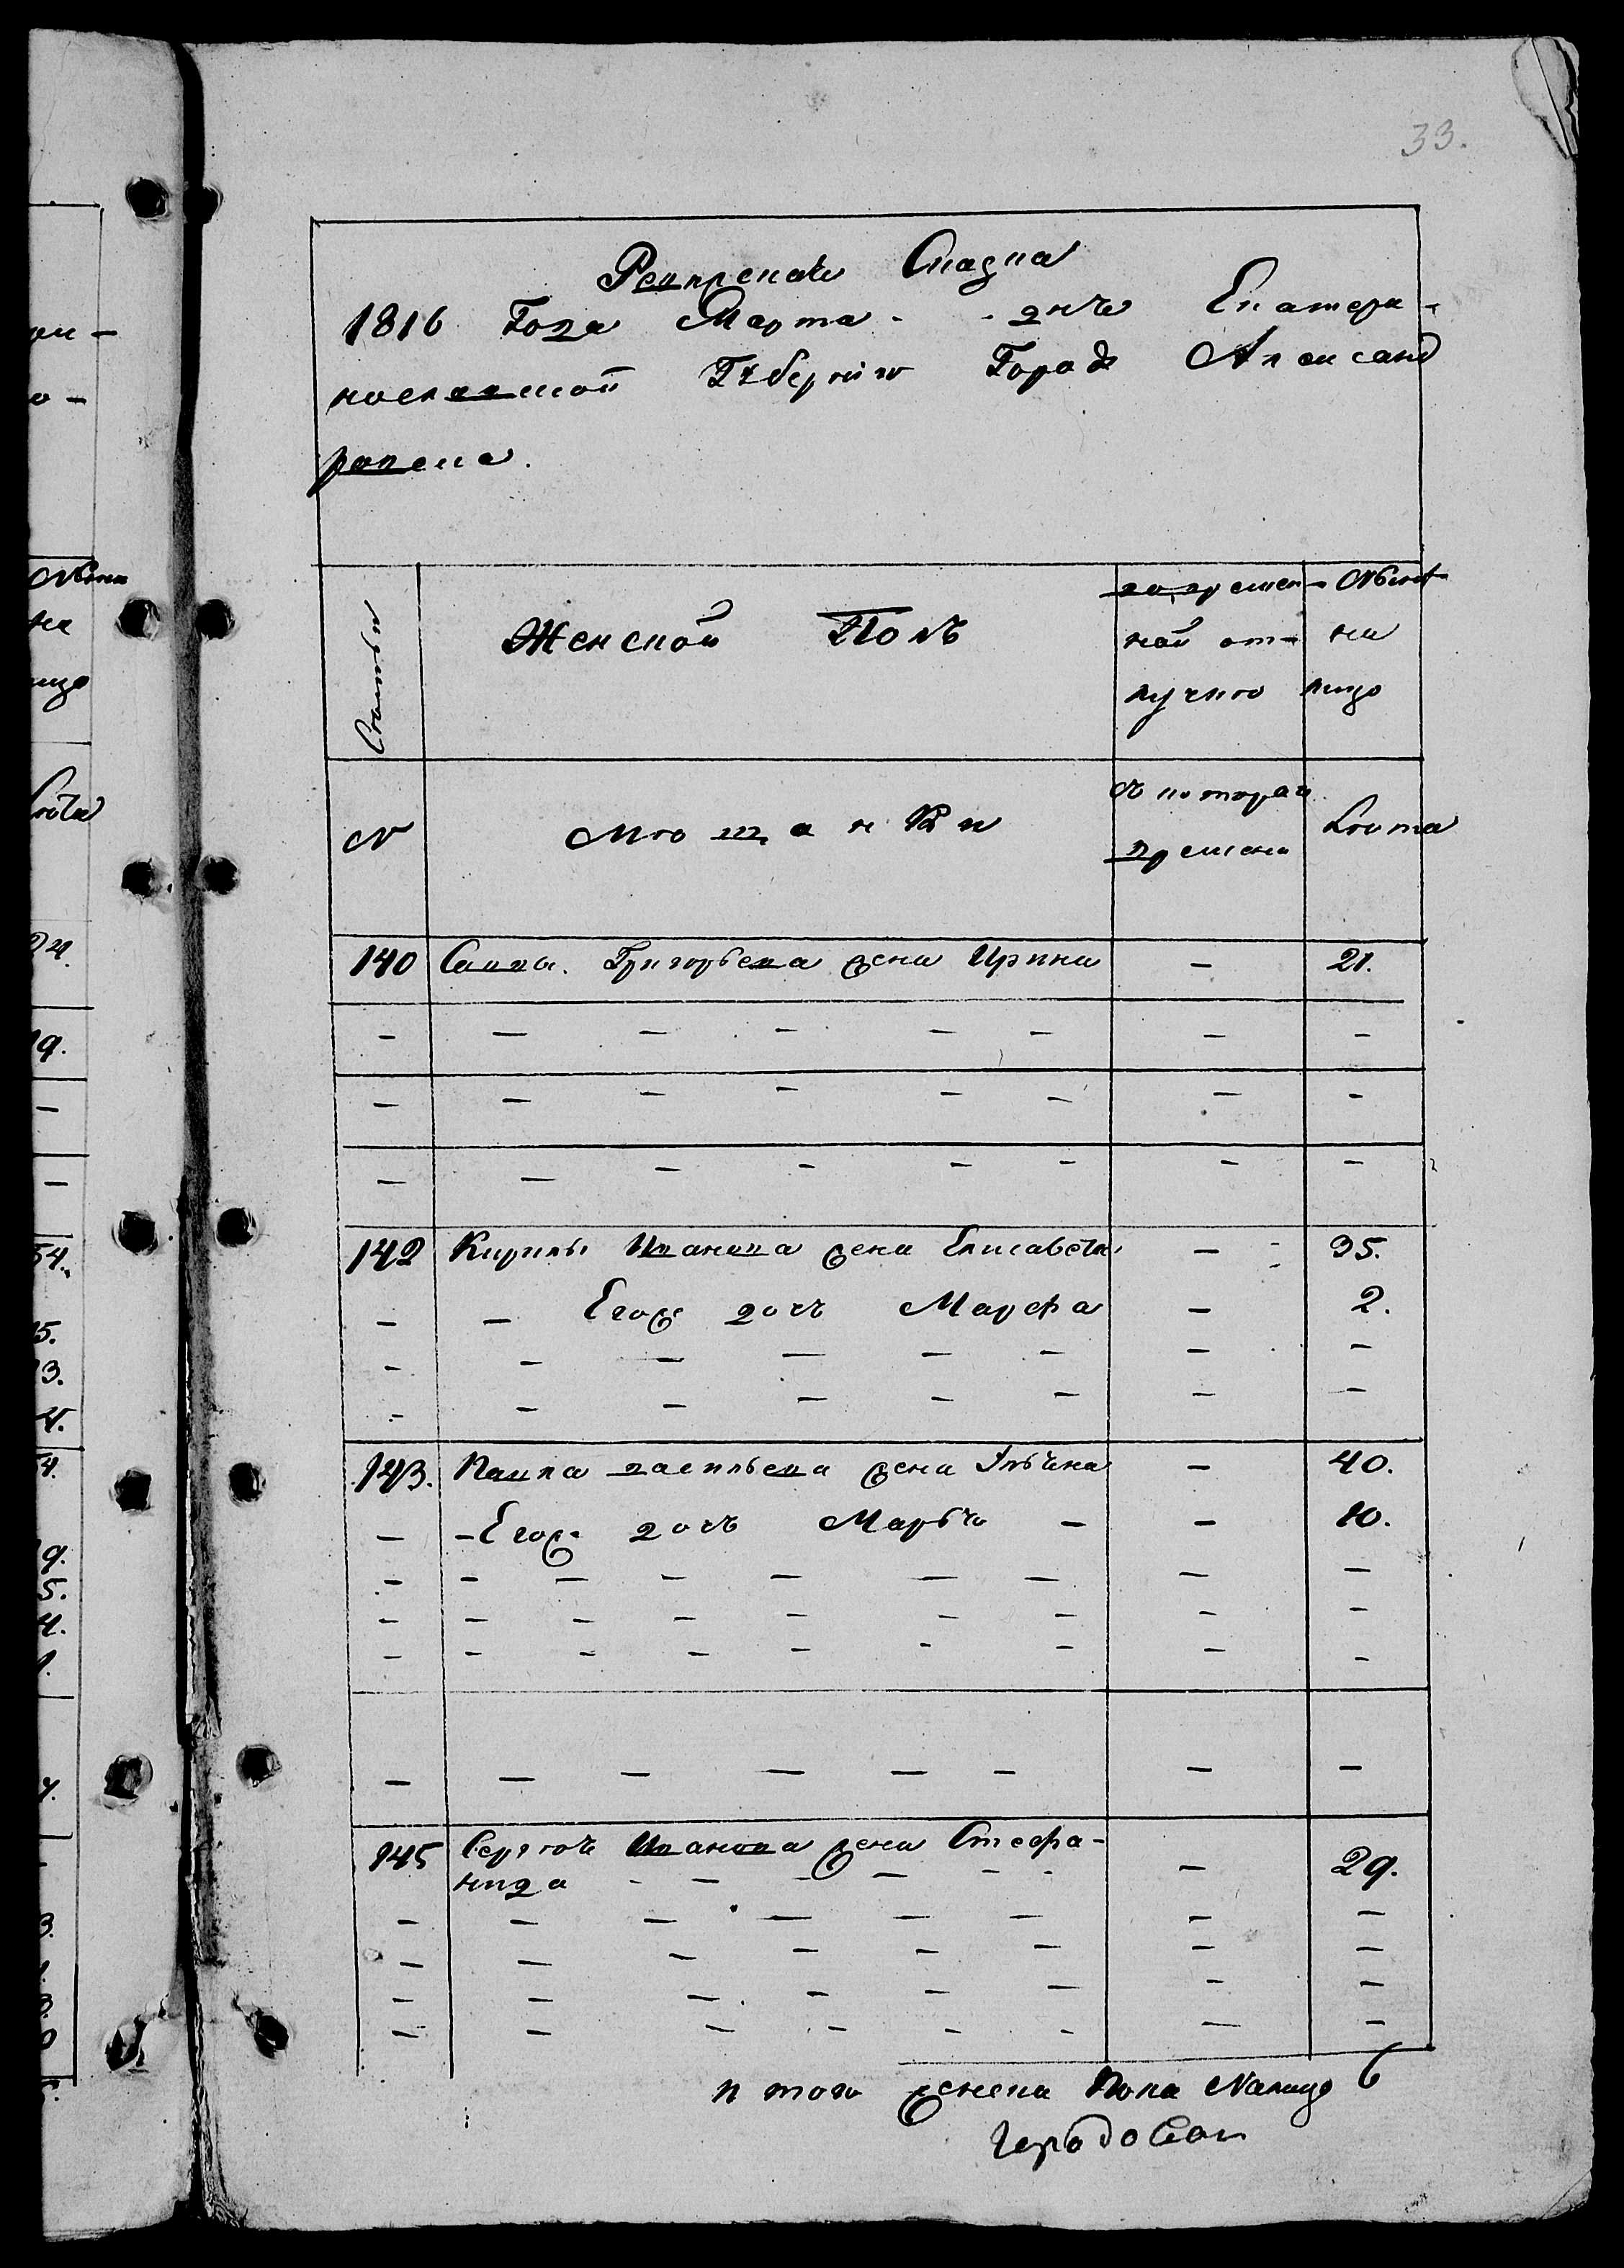 33.
Ревизская Сказка
1816 Года Марта - - дня Екатери-
нославской Губернии Города Александ
ровска.
Статьи
Женской Полъ
во времен-
ной от-
лучке
Ныне
на
лицо
N
Мещанки
Съ которого
времени
Лета
140 Саввы Григорьева жена Ирина - 21.
- - - - - - - -
- - - - - - - -
- - - - - - - -
142 Кирилы Иванова жена Елисавета - 35.
- - Егож дочь Марфа - 2.
- - - - - - - -
- - - - - - - -
143. Павла Васильева жена Ульяна - 40.
- - Егож дочь Марья - - 10.
- - - - - - - - -
- - - - - - - - -
- - - - - - - - -
- - - - - - - -
145 Сергея Иванова жена Стефа- - 29.
нида - - - - - -
- - - - - - - -
- - - - - - - -
- - - - - - - -
- - - - - - - -
итого женска пола Налицо 6